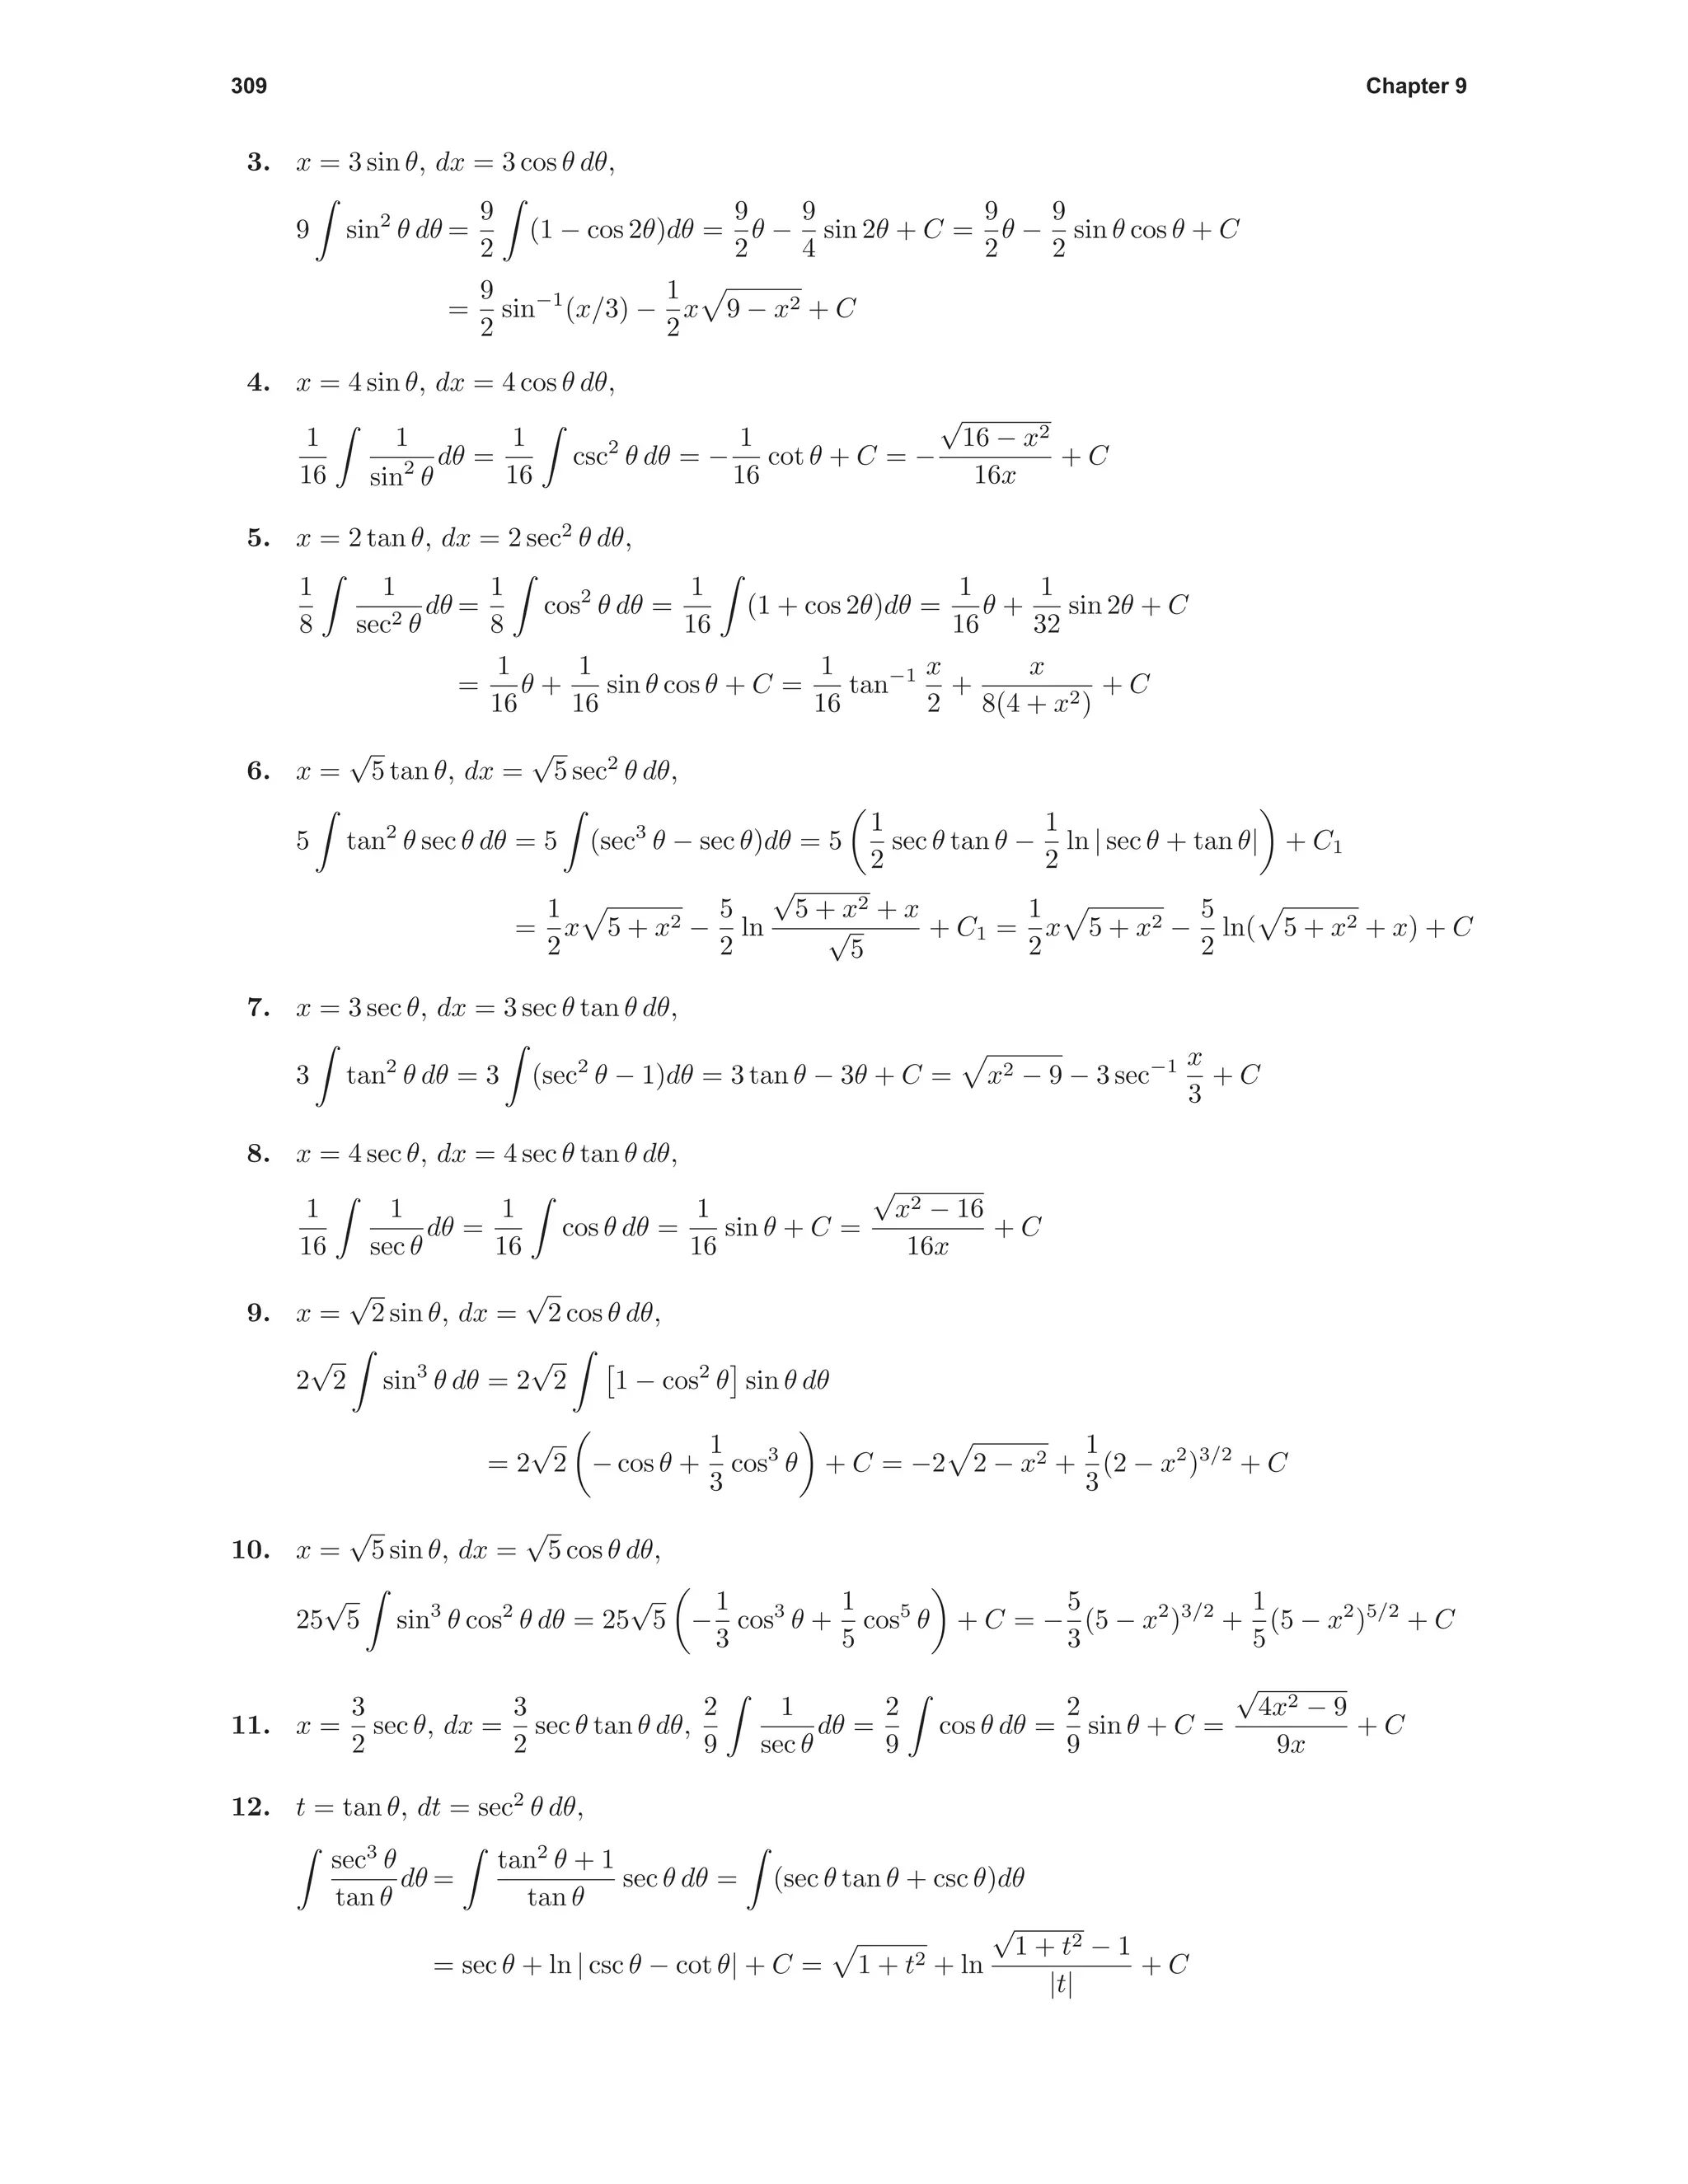 309 Chapter 9
3. x = 3 sin θ, dx = 3 cos θ dθ,
9 ∫ sin² θ dθ = 9/2 ∫ (1 − cos 2θ)dθ = 9/2 θ − 9/4 sin 2θ + C = 9/2 θ − 9/2 sin θ cos θ + C
= 9/2 sin⁻¹(x/3) − 1/2 x√(9 − x²) + C
4. x = 4 sin θ, dx = 4 cos θ dθ,
1/16 ∫ 1/(sin² θ) dθ = 1/16 ∫ csc² θ dθ = −1/16 cot θ + C = −√(16 − x²)/(16x) + C
5. x = 2 tan θ, dx = 2 sec² θ dθ,
1/8 ∫ 1/(sec² θ) dθ = 1/8 ∫ cos² θ dθ = 1/16 ∫ (1 + cos 2θ)dθ = 1/16 θ + 1/32 sin 2θ + C
= 1/16 θ + 1/16 sin θ cos θ + C = 1/16 tan⁻¹ x/2 + x/(8(4 + x²)) + C
6. x = √5 tan θ, dx = √5 sec² θ dθ,
5 ∫ tan² θ sec θ dθ = 5 ∫ (sec³ θ − sec θ)dθ = 5 (1/2 sec θ tan θ − 1/2 ln | sec θ + tan θ|) + C₁
= 1/2 x√(5 + x²) − 5/2 ln (√(5 + x²) + x)/√5 + C₁ = 1/2 x√(5 + x²) − 5/2 ln(√(5 + x²) + x) + C
7. x = 3 sec θ, dx = 3 sec θ tan θ dθ,
3 ∫ tan² θ dθ = 3 ∫ (sec² θ − 1)dθ = 3 tan θ − 3θ + C = √(x² − 9) − 3 sec⁻¹ x/3 + C
8. x = 4 sec θ, dx = 4 sec θ tan θ dθ,
1/16 ∫ 1/(sec θ) dθ = 1/16 ∫ cos θ dθ = 1/16 sin θ + C = √(x² − 16)/(16x) + C
9. x = √2 sin θ, dx = √2 cos θ dθ,
2√2 ∫ sin³ θ dθ = 2√2 ∫ [1 − cos² θ] sin θ dθ
= 2√2 (− cos θ + 1/3 cos³ θ) + C = −2√(2 − x²) + 1/3 (2 − x²)^(3/2) + C
10. x = √5 sin θ, dx = √5 cos θ dθ,
25√5 ∫ sin³ θ cos² θ dθ = 25√5 (−1/3 cos³ θ + 1/5 cos⁵ θ) + C = −5/3 (5 − x²)^(3/2) + 1/5 (5 − x²)^(5/2) + C
11. x = 3/2 sec θ, dx = 3/2 sec θ tan θ dθ, 2/9 ∫ 1/(sec θ) dθ = 2/9 ∫ cos θ dθ = 2/9 sin θ + C = √(4x² − 9)/(9x) + C
12. t = tan θ, dt = sec² θ dθ,
∫ (sec³ θ)/(tan θ) dθ = ∫ (tan² θ + 1)/(tan θ) sec θ dθ = ∫ (sec θ tan θ + csc θ)dθ
= sec θ + ln | csc θ − cot θ| + C = √(1 + t²) + ln (√(1 + t²) − 1)/|t| + C